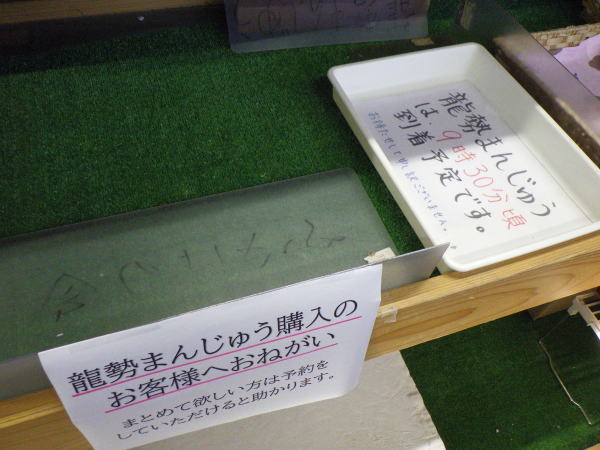 龍勢まんじゅう
は、9時30分頃
到着予定です。
お待たせして申し訳ございません。
龍勢まんじゅう購入の
お客様へおねがい
まとめて欲しい方は予約を
していただけると助かります。